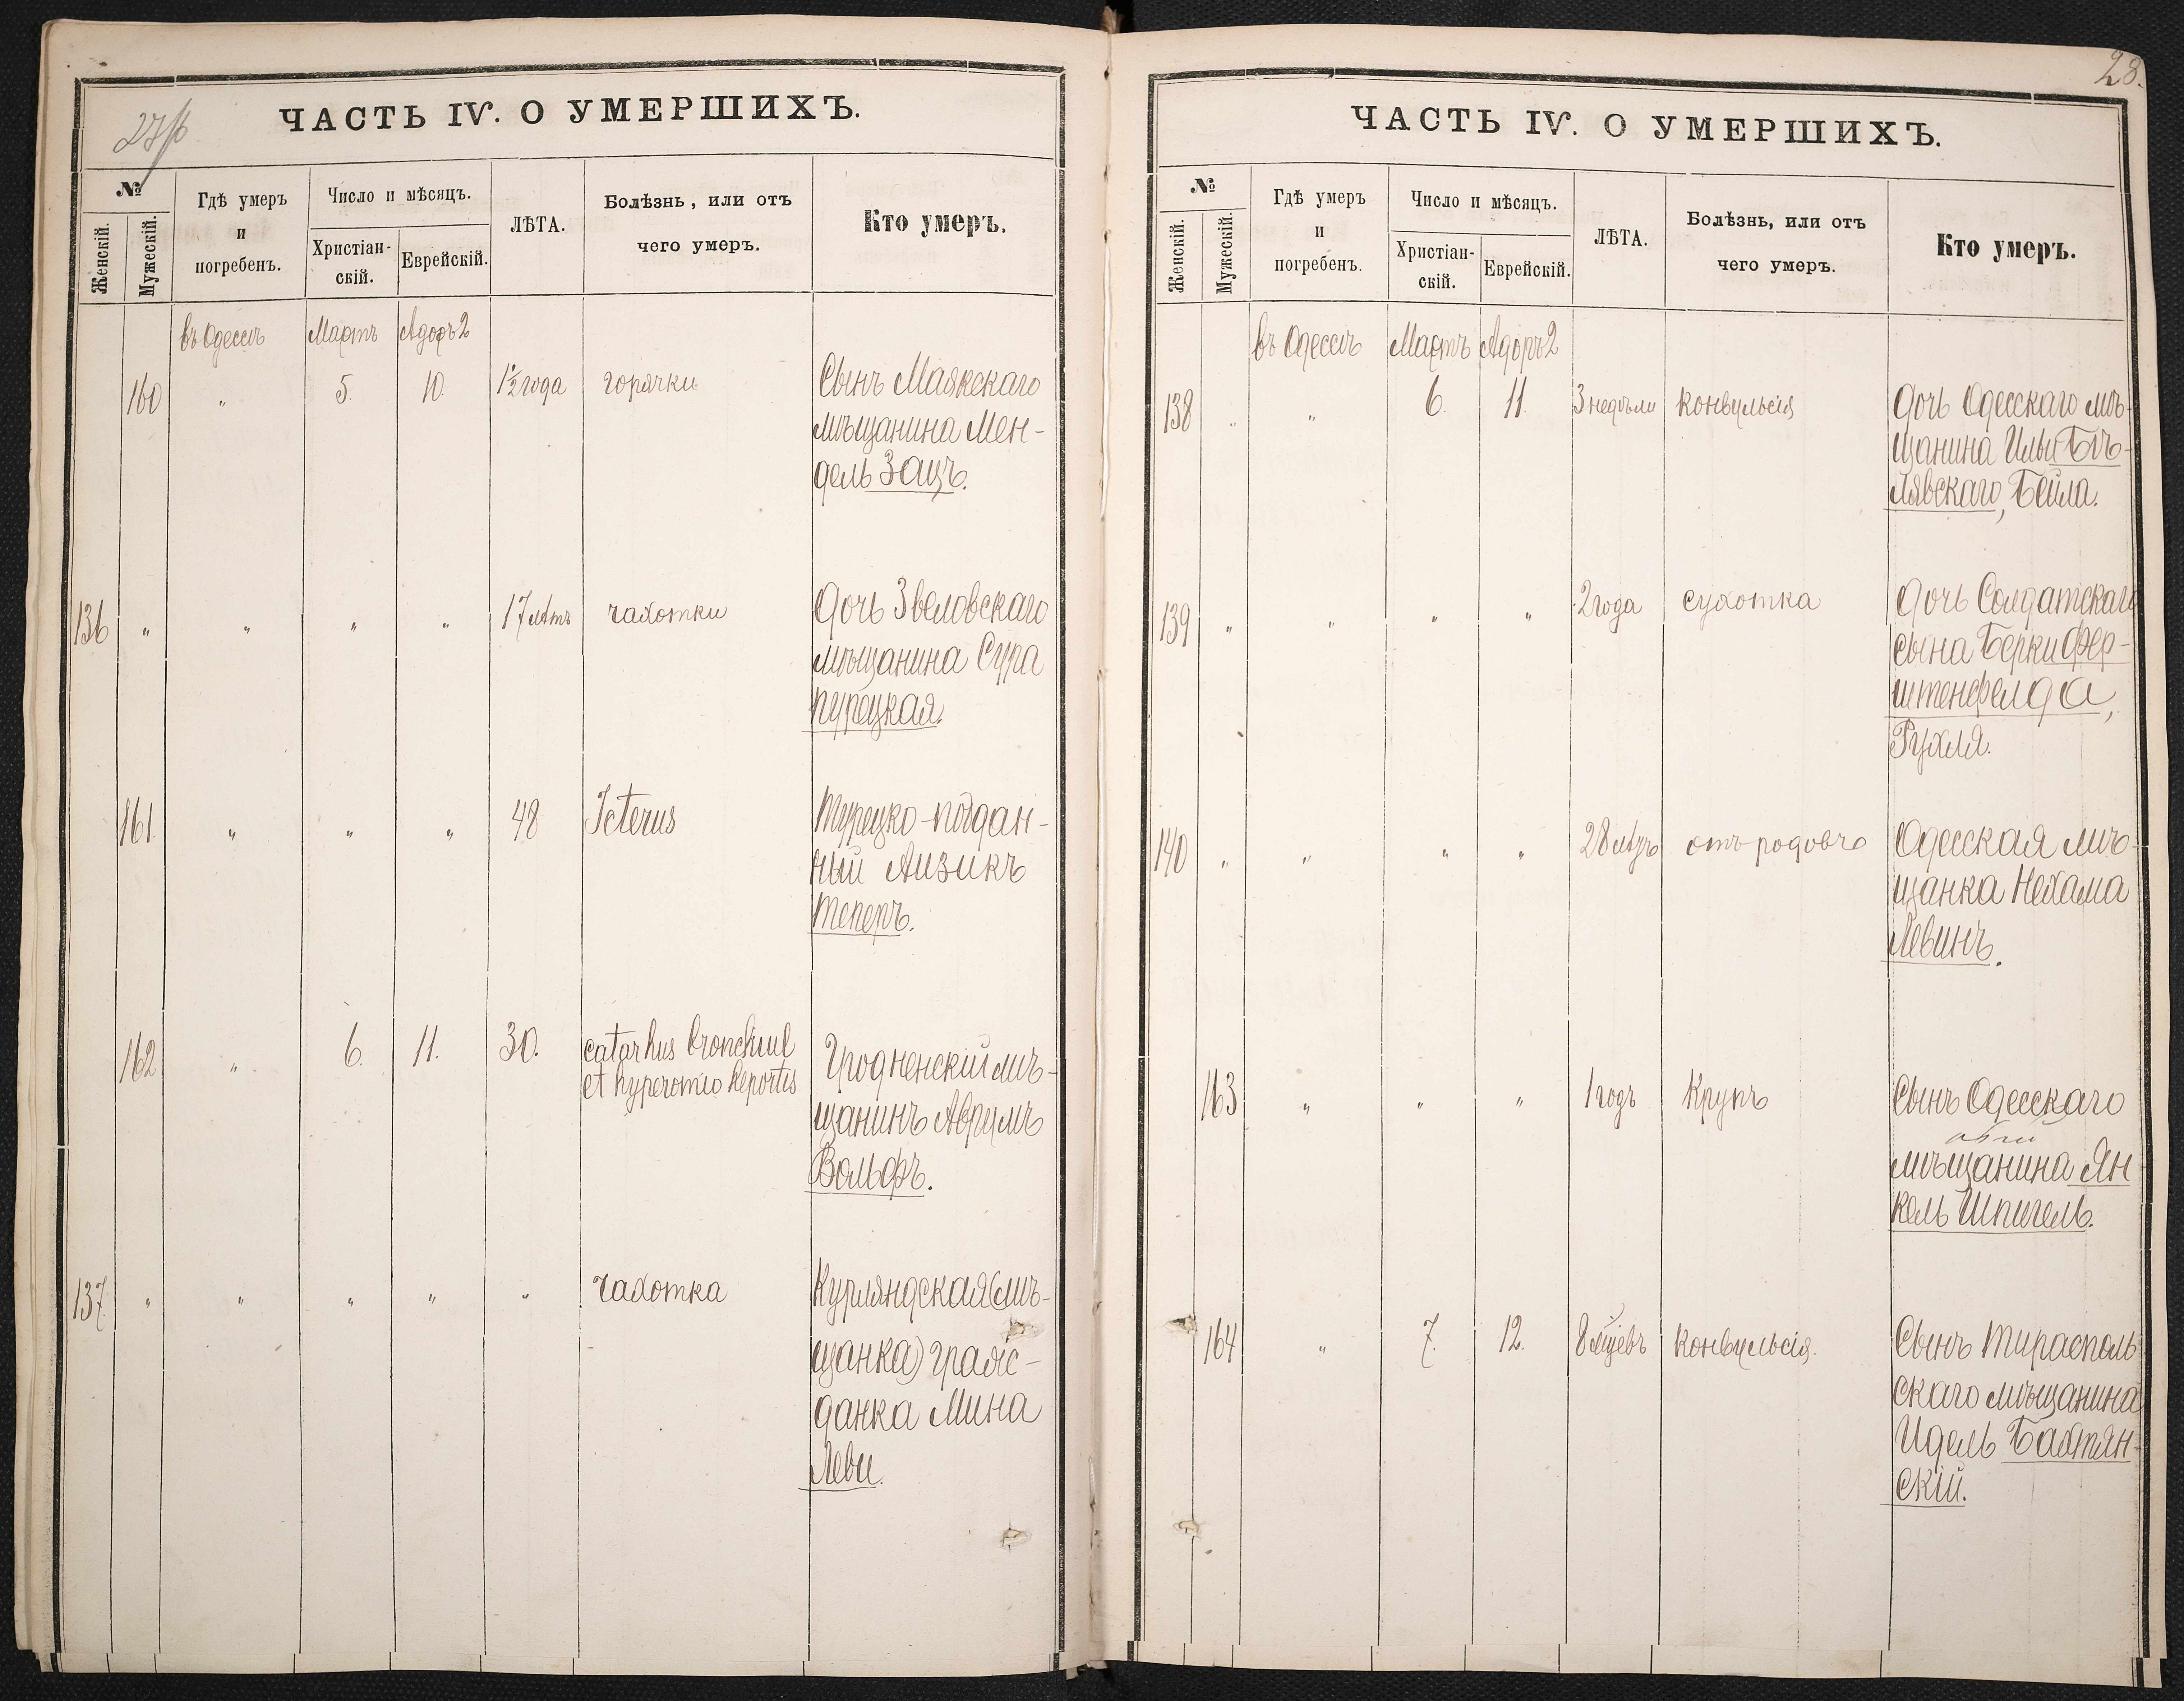 ЧАСТЬ IV. О УМЕРШИХЪ.
№
Женскій.
Мужескій.
Гдѣ умеръ
и
погребенъ.
Число и мѣсяцъ.
Христіан-
скій.
Еврейскій.
ЛѢТА.
Болѣзнь, или отъ
чего умеръ.
Кто умеръ.
въ Одессѣ Мартъ Адаръ 2
160 " 5. 10. 1½ года горячки Сынъ Маякскаго
мѣщанина Мен-
дель Зацъ.
136 " " " " 17 лѣтъ чахотки Дочь Звеловскаго
мѣщанина Сура
Пурецкая.
161 " " " 48 Icterus Турецко-поддан-
ный Аизикъ
Теперъ.
162 " 6. 11. 30. catarhus bronchiul
et hyperomio heportis
Гродненскій мѣ-
щанинъ Аврумъ
Вольфъ.
137 " " " " " чахотка Курляндская (мѣ-
щанка) граж-
данка Мина
Леви.
28.
ЧАСТЬ IV. О УМЕРШИХЪ.
№
Женскій.
Мужескій.
Гдѣ умеръ
и
погребенъ.
Число и мѣсяцъ.
Христіан-
скій.
Еврейскій.
ЛѢТА.
Болѣзнь, или отъ
чего умеръ.
Кто умеръ.
въ Одессѣ Мартъ Адаръ 2
138 " " 6. 11. 3 недѣли конвульсія Дочь Одесскаго мѣ-
щанина Ильи Бѣ-
лявскаго, Бейла.
139 " " " " 2 года сухотка Дочь Солдатскаго
сына Берки Фер-
штенфелда,
Рухля.
140 " " " " 28 лѣтъ отъ родовъ Одесская мѣ-
щанка Нехама
Левинъ.
163 " " " 1 годъ Крупъ Сынъ Одесскаго
мѣщанина Ян-
кель Шпигель.
164 " 7. 12. 8 мѣцевъ конвульсія. Сынъ Тирасполь-
скаго мѣщанина
Идель Бахтян-
скій.